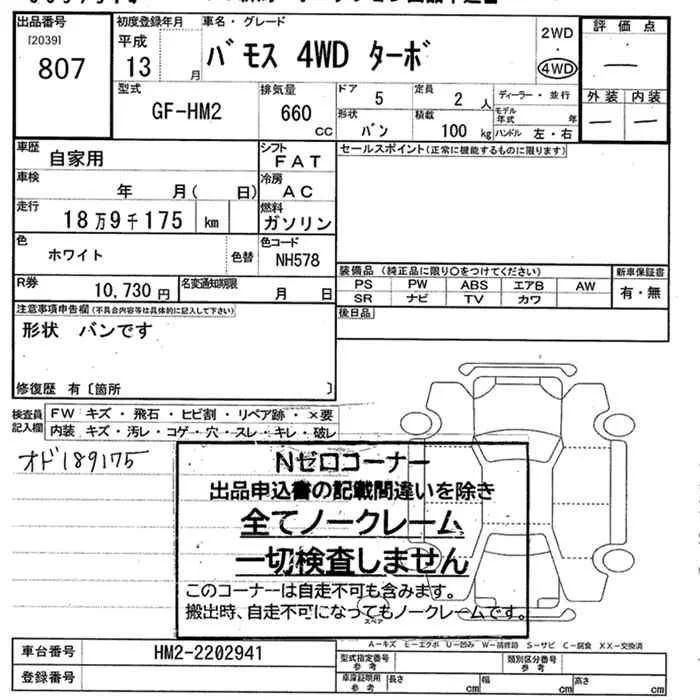 出品番号 初度登録年月 車名・グレード 2WD 評価点
[2039] 平成
807 13 月 バモス 4WD ターボ ・ 4WD ―
型式 排気量 ドア 5 定員 2 人 ディーラー・並行 外装 内装
GF-HM2 660 cc 形状 バン 積載 100 kg モデル年式 年 ― ―
ハンドル 左・右
車歴 自家用 シフト FAT セールスポイント(正常に機能するものに限ります)
車検 年 月( 日) 冷房 AC
走行 18万9千175 km 燃料 ガソリン
色 ホワイト 色替 色コード NH578
装備品(純正品に限り○をつけてください) 新車保証書
R券 10,730 円 名変通知期限 月 日 PS PW ABS エアB AW 有・無
SR ナビ TV カワ
注意事項申告欄(不具合内容等は具体的に記入して下さい) 後日品
形状 バンです
修復歴 有〔箇所 〕
検査員記入欄 FW キズ・飛石・ヒビ割・リペア跡・×要
内装 キズ・汚レ・コゲ・穴・スレ・キレ・破レ
オド189175
Nゼロコーナー
出品申込書の記載間違いを除き
全てノークレーム
一切検査しません
このコーナーは自走不可も含みます。
搬出時、自走不可になってもノークレームです。
スペア
A－キズ E－エクボ U－凹み W－補修跡 S－サビ C－腐食 XX－交換済
車台番号 HM2-2202941 型式指定番号参考 類別区分番号参考
登録番号 車庫証明用参考 長さ cm 幅 cm 高さ cm